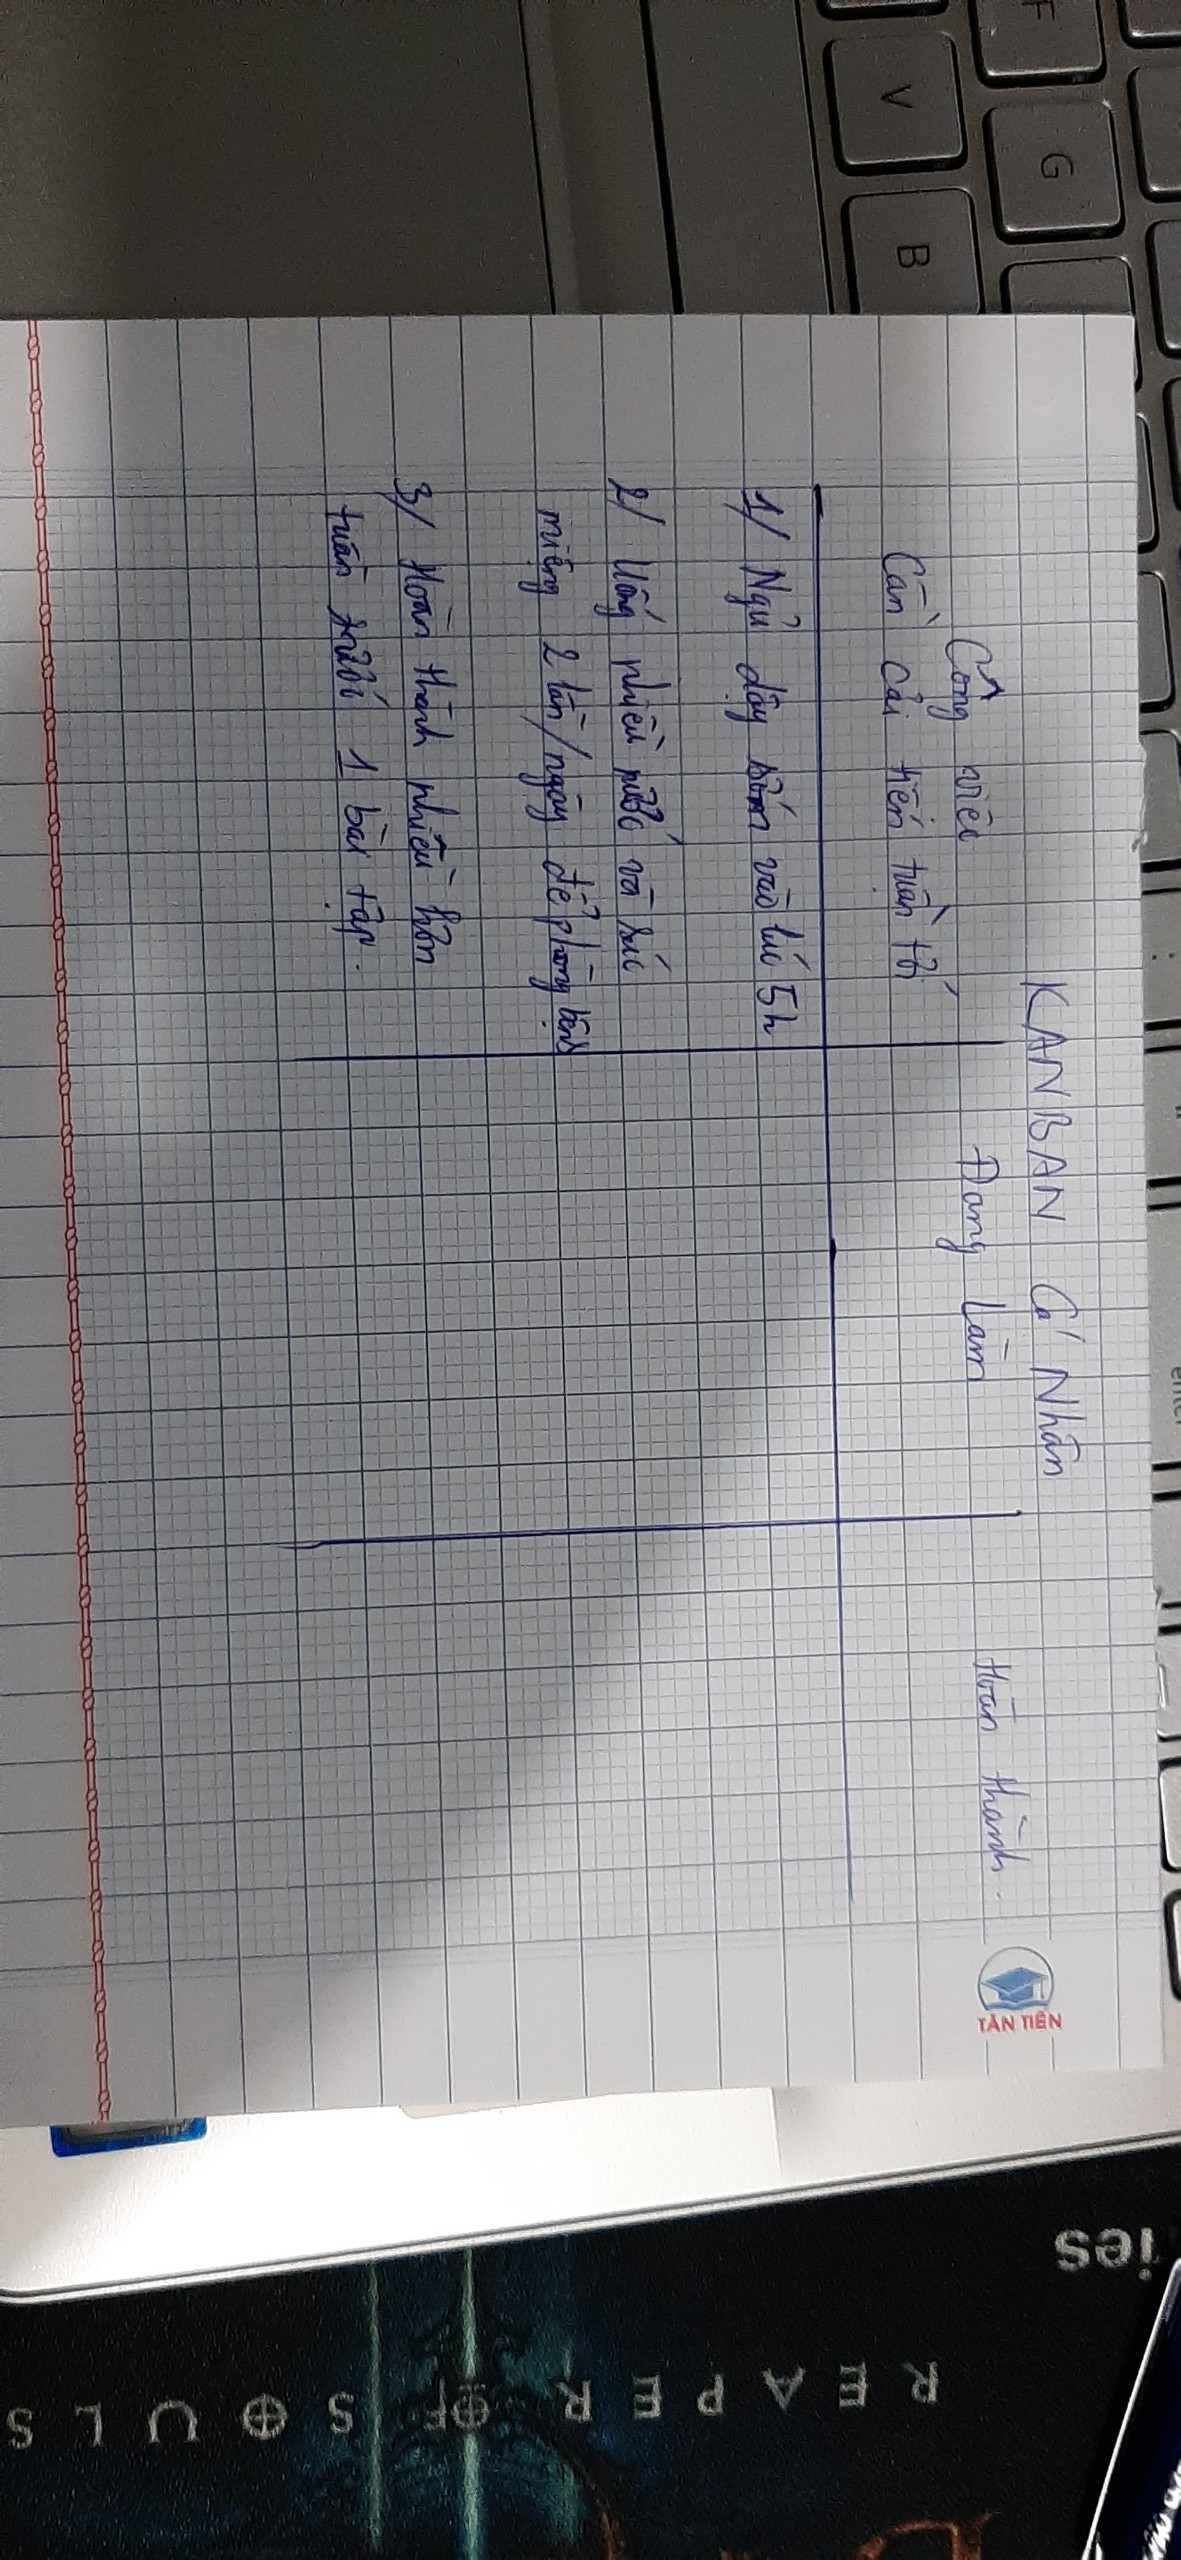 KANBAN Cá Nhân
Công việc
Cần cải tiến tuần tới
Đang Làm
Hoàn thành.
1/ Ngủ dậy sớm vào lúc 5h
2/ Uống nhiều nước và súc
miệng 2 lần/ngày để phòng bệnh
3/ Hoàn thành nhiều hơn
tuần trước 1 bài tập.
TÂN TIẾN
V
G
B
F
enter
ies
REAPER OF SOULS